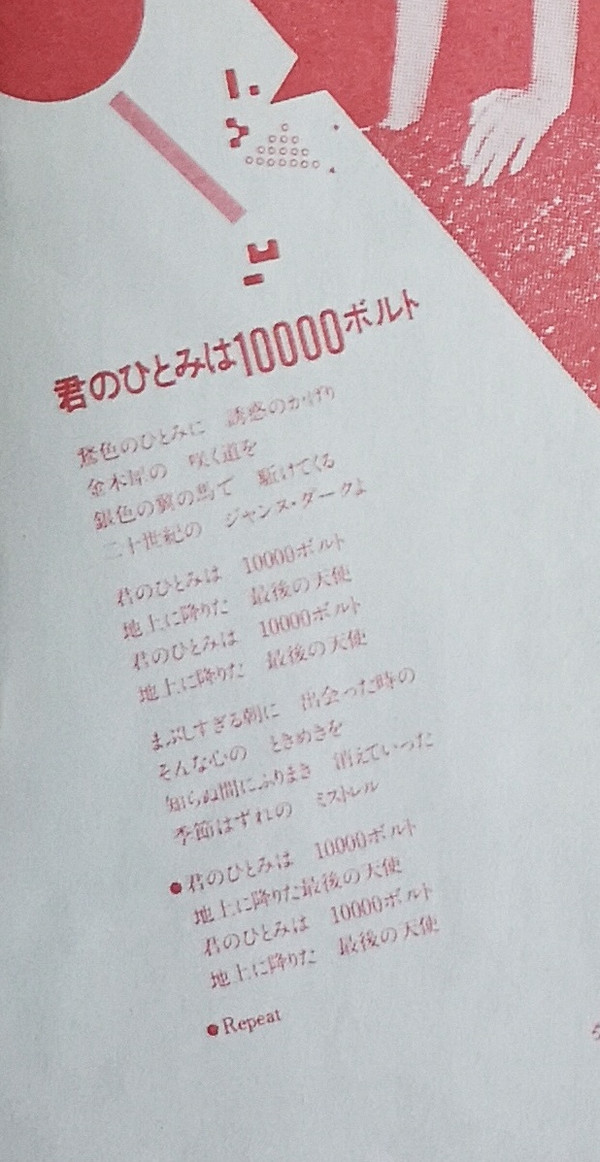 君のひとみは10000ボルト
鳶色のひとみに 誘惑のかげり
金木犀の 咲く道を
銀色の翼の馬で 駈けてくる
二十世紀の ジャンヌ・ダークよ
君のひとみは 10000ボルト
地上に降りた 最後の天使
君のひとみは 10000ボルト
地上に降りた 最後の天使
まぶしすぎる朝に 出会った時の
そんな心の ときめきを
知らぬ間にふりまき 消えていった
季節はずれの ミストレル
●君のひとみは 10000ボルト
地上に降りた最後の天使
君のひとみは 10000ボルト
地上に降りた 最後の天使
●Repeat